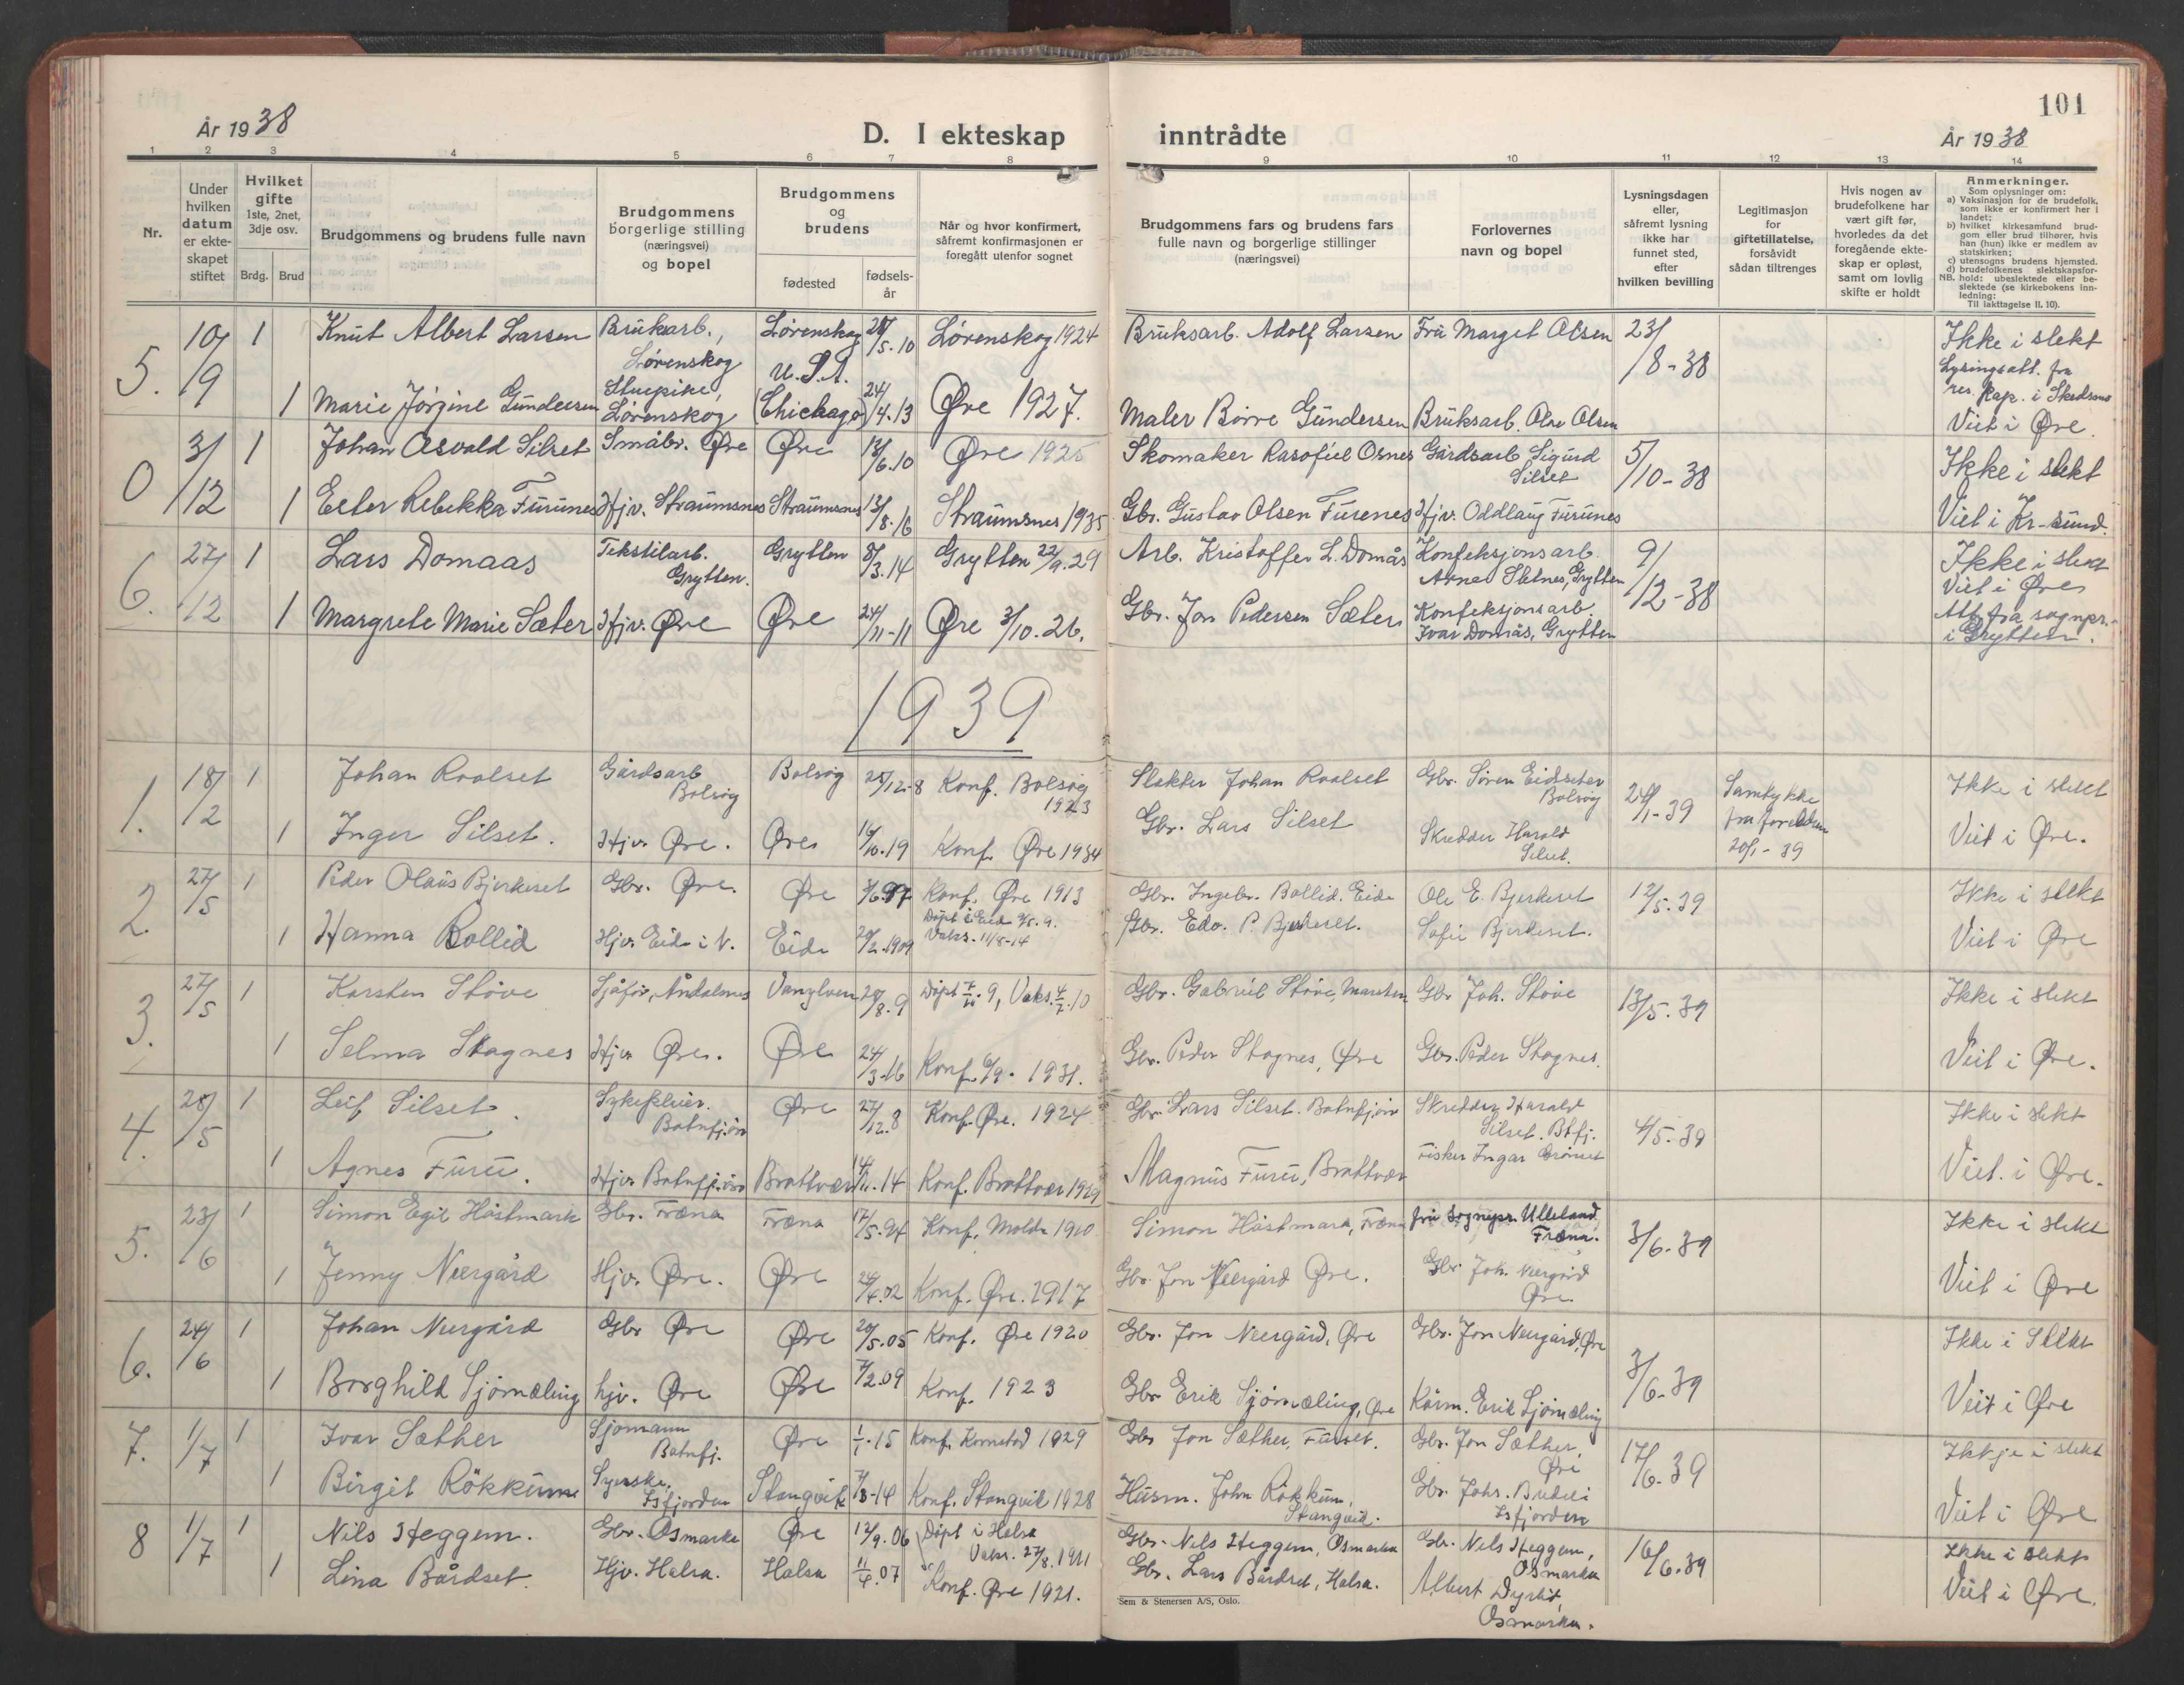 101
År 1938
D. I ekteskap inntrådte
År 1938
1 2 3 4 5 6 7 8 9 10 11 12 13 14
Nr.
Under hvilken datum er ekteskapet stiftet
Hvilket gifte 1ste, 2net, 3dje osv.
Brdg. Brud
Brudgommens og brudens fulle navn
Brudgommens borgerlige stilling (næringsvei) og bopel
Brudgommens og brudens
fødested
fødselsår
Når og hvor konfirmert, såfremt konfirmasjonen er foregått utenfor sognet
Brudgommens fars og brudens fars fulle navn og borgerlige stillinger (næringsvei)
Forlovernes navn og bopel
Lysningsdagen eller, såfremt lysning ikke har funnet sted, efter hvilken bevilling
Legitimasjon for giftetillatelse, forsåvidt sådan tiltrenges
Hvis nogen av brudefolkene har vært gift før, hvorledes da det foregående ekteskap er opløst, samt om lovlig skifte er holdt
Anmerkninger.
Som oplysninger om:
a) Vaksinasjon for de brudefolk, som ikke er konfirmert her i landet;
b) hvilket kirkesamfund brudgom eller brud tilhører, hvis han (hun) ikke er medlem av statskirken;
c) utensogns brudens hjemsted.
d) brudefolkenes slektskapsforhold: ubeslektede eller beslektede (se kirkebokens innledning:
NB.
Til iakttagelse II. 10).
5. 10/9 1 Knut Albert Larsen Bruksarb., Lørenskog Lørenskog 5-10 Lørenskog 1924 Bruksarb. Adolf Larsen Fru Margit Olsen 23/8-38 Ikke i slekt
Lysingsatt. fra res. kap. i Skedsmo
1 Marie Jørgine Gundersen Stuepike, Lørenskog U.S.A. (Chicago) 24/4-13 Øre 1927. Maler Børre Gundersen Bruksarb. Olav Olsen Viet i Øre.
0 3/12 1 Johan Asvald Silset Småbr. Øre Øre 6.10 Øre 1925 Skomaker Rasofiel Osnes Gårdsarb. Sigurd Silset 5/10-38 Ikke i slekt
1 Ester Rebekka Furunes Hjv. Straumsnes Straumsnes 13/8.16 Straumsnes 1935 Gbr. Gustav Olsen Furenes Hjv. Oddlaug Furunes Viet i Kr-sund.
6. 27/12 1 Lars Domaas Tekstilarb. Grytten. Grytten 8/3.14 Grytten 22/9.29 Arb. Kristoffer L. Domås Konfeksjonsarb. Arne Sletnes, Grytten 9/12-38 Ikke i slekt
Viet i Øre
1 Margrete Marie Sæter Hjv. Øre Øre 24/11-11 Øre 3/10.26. Gbr. Jon Pedersen Sæter Konfeksjonsarb. Ivar Domås, Grytten Att. fra sognpr. i Grytten.
1939
1. 18/2 1 Johan Roalset Gårdsarb Bolsøy Bolsøy 12-8 Konf. Bolsøy 1923 Slakter Johan Roalset Gbr. Søren Eidsseter Bolsøy 24/1-39 Samtykke fra foreldrene 20/1-39 Ikke i slekt
1 Inger Silset. Hjv. Øre. Øre 16/10.19 Konf. Øre 1934 Gbr. Lars Silset Skredder Harald Silset. Viet i Øre.
2. 27/5 1 Peder Olaus Bjerkeset Gbr. Øre. Øre Konf. Øre 1913 Gbr. Ingebr. Bollid. Eide Ole E. Bjerkeset 12/5.39 Ikke i slekt
1 Hanna Bollid Hjv. Eide i N. Eide 20/2.1909 Døpt i Eid 9. Vaks. 11/8-14 Gbr. Edv. P. Bjerkeset. Sofie Bjerkeset. Viet i Øre
3. 27/5 1 Karsten Støve Sjåfør, Åndalsnes Vanylven 8.9 Døpt 9, Vaks. 4/7.10 Gbr. Gabriel Støve, Marsten Gbr Joh. Støve 13/5.39 Ikke i slekt
1 Selma Stagnes Hjv Øre. Øre 24/3.16 Konf. 1931. Gbr. Peder Stagnes, Øre Gbr. Peder Stagnes. Viet i Øre.
4. 28/5 1 Leif Silset. Sykepleier. Batnfjør Øre 27/12.8 Konf. Øre. 1924 Gbr. Lars Silset. Batnfjør Skredder Harald Silset. Btfj. 4/5.39 Ikke i slekt
1 Agnes Furu. Hjv Batnfjør Brattvær 14/11.14 Konf. Brattvær 1929 Magnus Furu, Brattvær Fisker Ingar Grønset Viet. i Øre.
5. 23/6 1 Simon Egil Håstmark Gbr. Fræna Fræna 17/5.94 Konf. Molde 1910 Simon Håstmark, Fræna fru sognepr. Ulleland, Fræna. 3/6.39 Ikke i slekt
1 Jenny Neergård Hjv. Øre. Øre 24/4.02 Konf. Øre. 1917 Gbr. Jon Neergård Øre. Gbr Joh. Neergård Øre. Viet i Øre
6. 24/6 1 Johan Neergård Gbr Øre Øre 20/5.05 Konf. Øre 1920 Gbr. Jon Neergård, Øre Gbr. Jon Neergård, Øre 3/6.39 Ikke i Slekt
1 Borghild Sjømæling hjv. Øre Øre 7/2.09 Konf. 1923 Gbr Erik Sjømæling, Øre Kårm. Erik Sjømæling Viet i Øre
7. 1/7 1 Ivar Sæther Sjømann Batnfj. Øre 1/1.15 Konf. Kornstad 1929 Gbr Jon Sæther, Furset. Gbr. Jon Sæther, Øre 17/6.39 Ikkje i slekt
1 Birgit Rökkum Syerske, Isfjorden Stangvik 3-14 Konf. Stangvik 1928 Husm. John Rökkum, Stangvik. Gbr. Johs. Isfjorden Viet i Øre
8 1/7 1 Nils Heggem. Gbr. Osmarka Øre 12/9.06 Døpt i Halsa Vaks. 27/8.1911 Gbr. Nils Heggem, Osmarka Gbr. Nils Heggem, Osmarka 16/6.39 Ikke i slekt
1 Lina Bårdset. Hjv. Halsa. Halsa 11/4.07 Konf. Øre 1921. Gbr. Lars Bårdset, Halsa. Albert Dyrlid, Osmarka. Viet i Øre.
Sem & Stenersen A/S, Oslo.